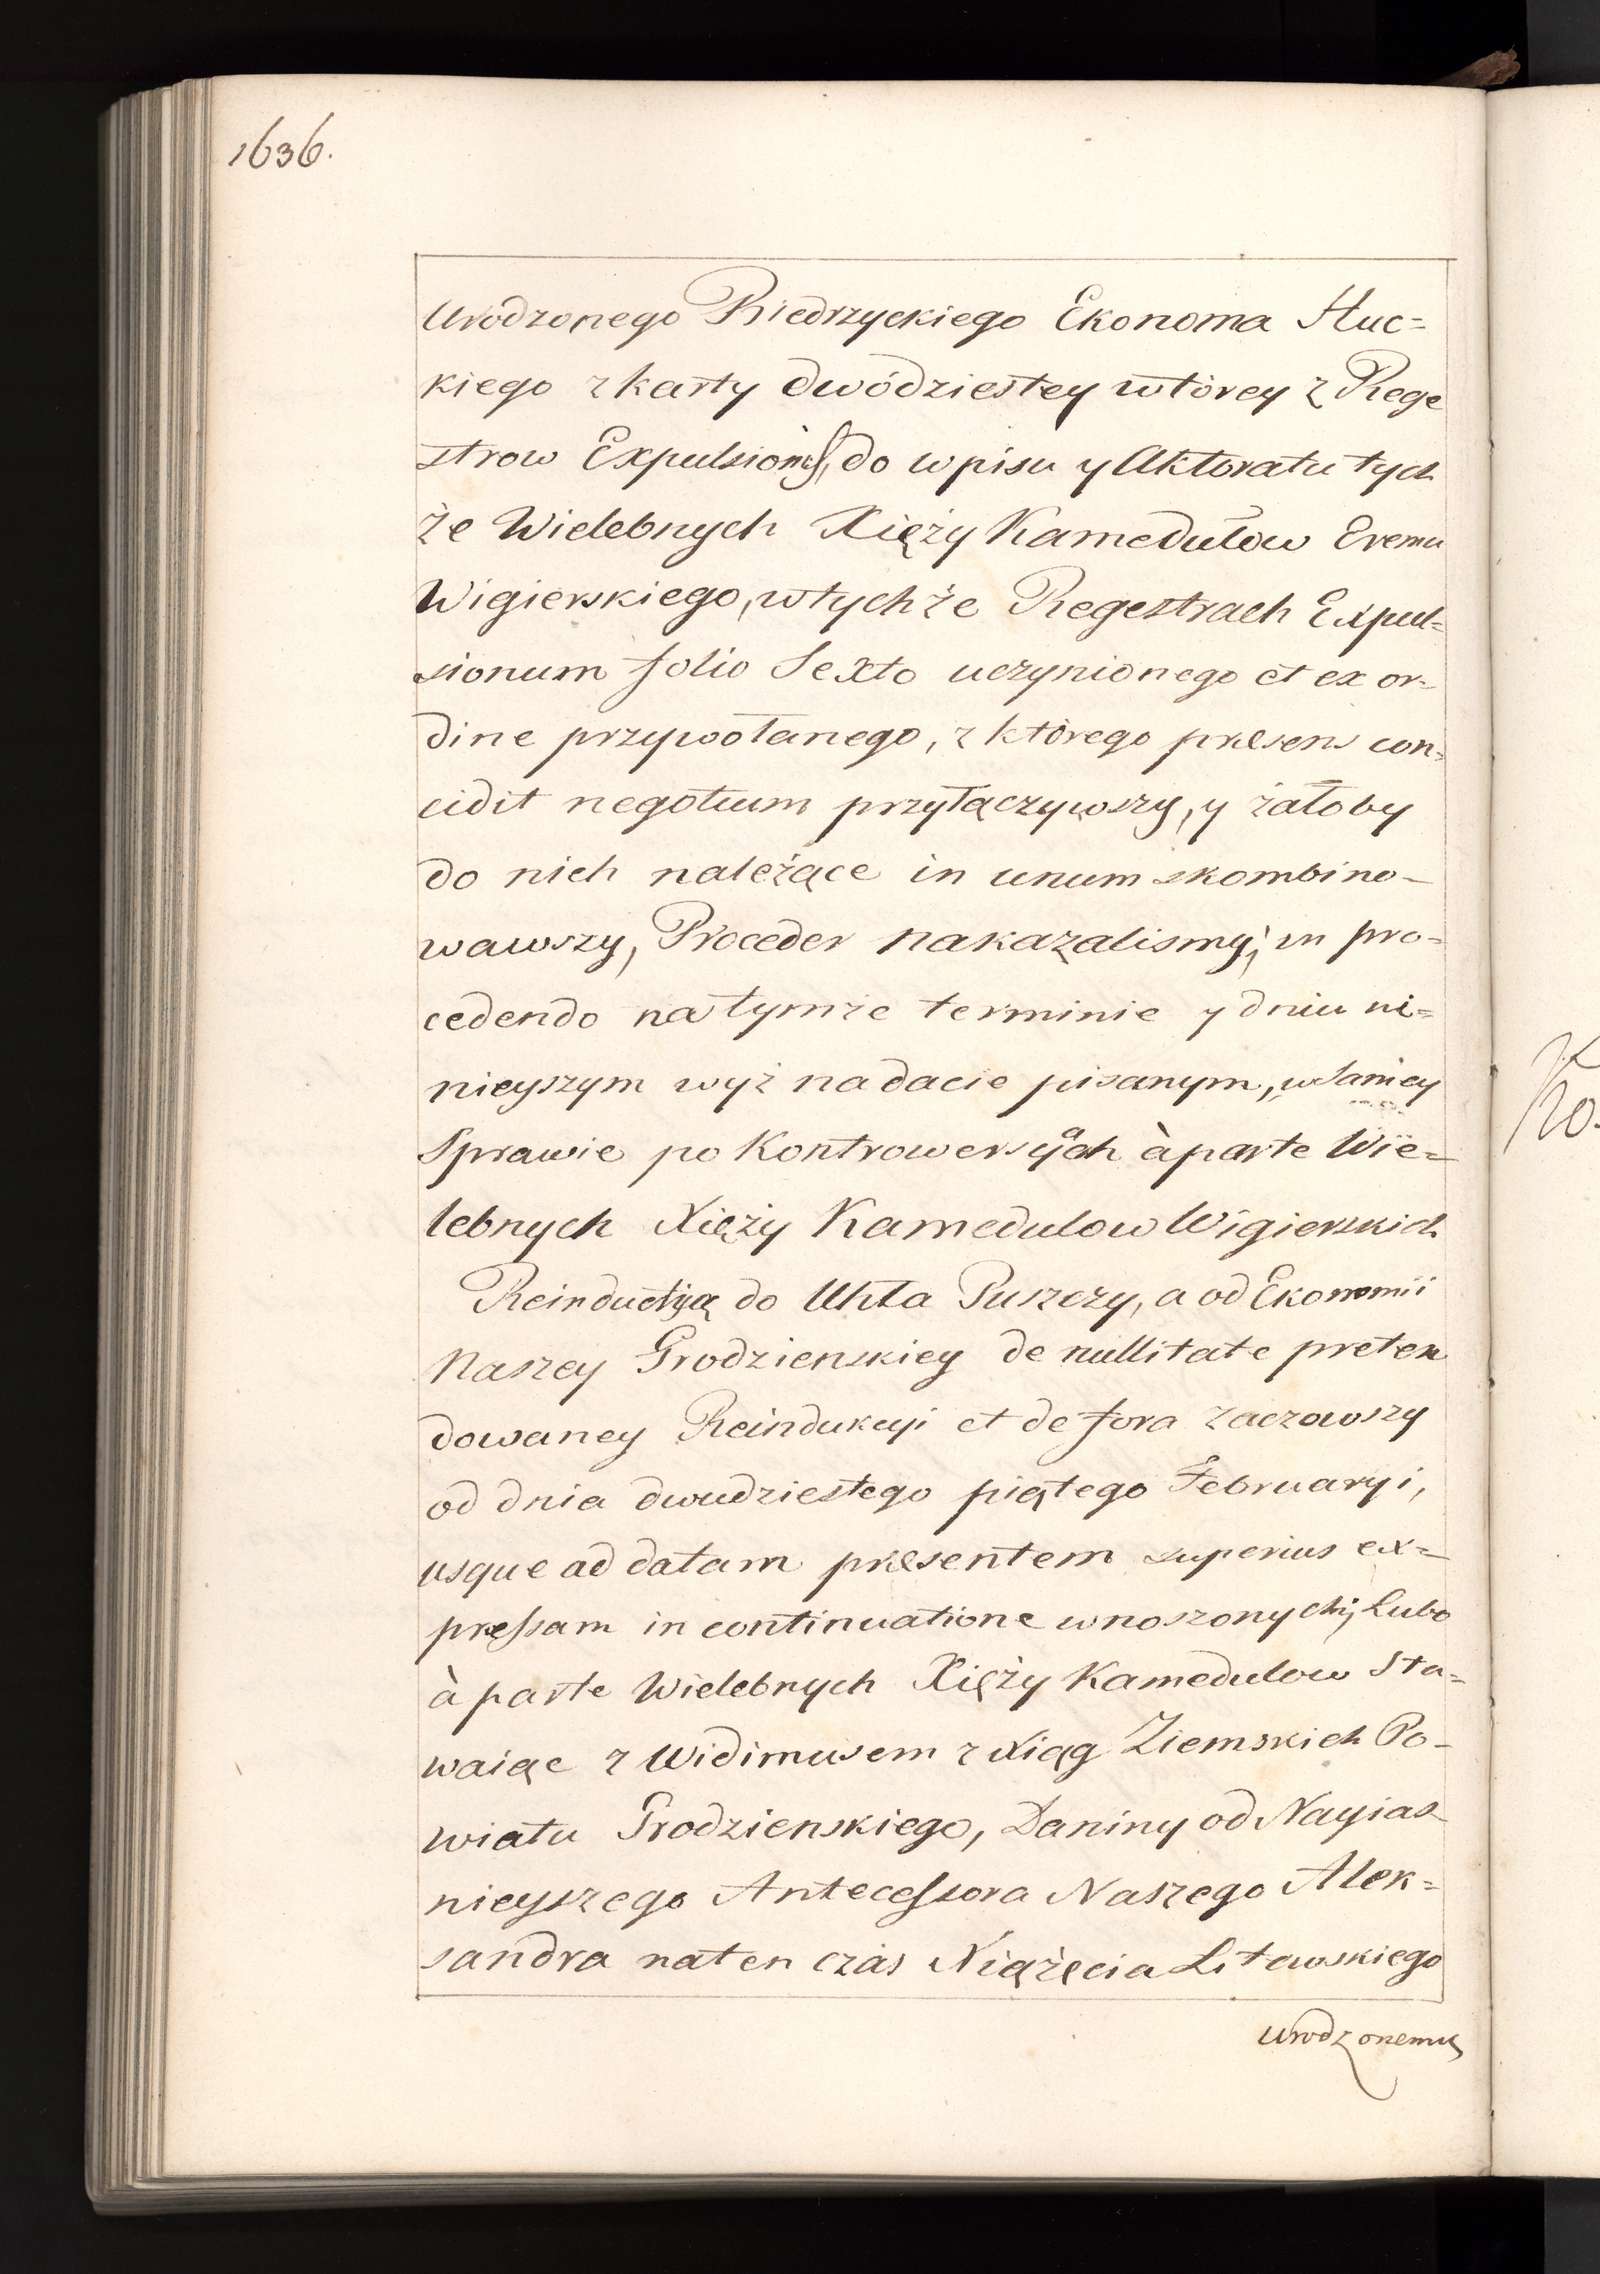 1636.
Urodzonego Biedrzyckiego Ekonoma Huc=
kiego z karty dwódziestey wtórey z Rege
strow Expulsionũ, do wpisu y Aktoratu tych
że Wielebnych Xięży Kamedułow Eremu
Wigierskiego, w tychże Regestrach Expul=
sionum folio Sexto uczynionego et ex or=
dine przywołanego, z którego præsens con=
cidit negotium przyłączywszy, y żałoby
do nich należące in unum skombino=
wawszy, Proceder nakazalismy; in pro=
cedendo na tymże terminie y dniu ni=
nieyszym wyż na dacie pisanym, w Samey
Sprawie po Kontrowersyach à parte Wie=
lebnych Xięży Kamedulow Wigierskich
Reinductyą do Uhła Puszczy, a od Ekonomii
Naszey Grodzienskiey de nullitate preten
dowaney Reindukcyi et de fora zaczowszy
od dnia dwudziestego piątego Februaryi,
usque ad datam præsentem superius ex=
pressam in continuatione wnoszonych; Lubo
à parte Wielebnych Xięży Kamedulow Sta=
waiąc z Widimusem z Xiąg Ziemskich Po=
wiatu Grodzienskiego, Daniny od Nayias
nieyszego Antecessora Naszego Alek=
sandra na ten czas Xiążęcia Litewskiego
Urodzonemu